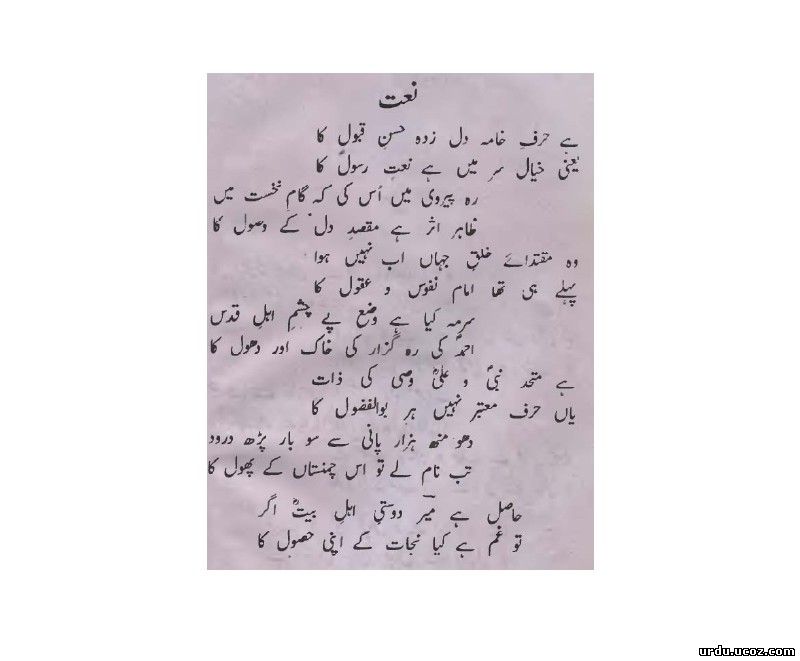 نعت
ہے حرفِ خامہ دل زدہ حسنِ قبول کا
یعنی خیال سر میں ہے نعتِ رسولؐ کا
رہ پیروی میں اُس کی کہ گامِ نخست میں
ظاہر اثر ہے مقصدِ دل کے وصول کا
وہ مقتدائے خلقِ جہاں اب نہیں ہوا
پہلے ہی تھا امام نفوس و عقول کا
سرمہ کیا ہے وضع پے چشمِ اہلِ قدس
احمدؐ کی رہ گزار کی خاک اور دھول کا
ہے متحد نبیؐ و علیؓ وصی کی ذات
یاں حرف معتبر نہیں ہر بوالفضول کا
دھو منھ ہزار پانی سے سو بار پڑھ درود
تب نام لے تو اس چمنستاں کے پھول کا
حاصل ہے میرؔ دوستیِ اہلِ بیتؓ اگر
تو غم ہے کیا نجات کے اپنی حصول کا
urdu.ucoz.com